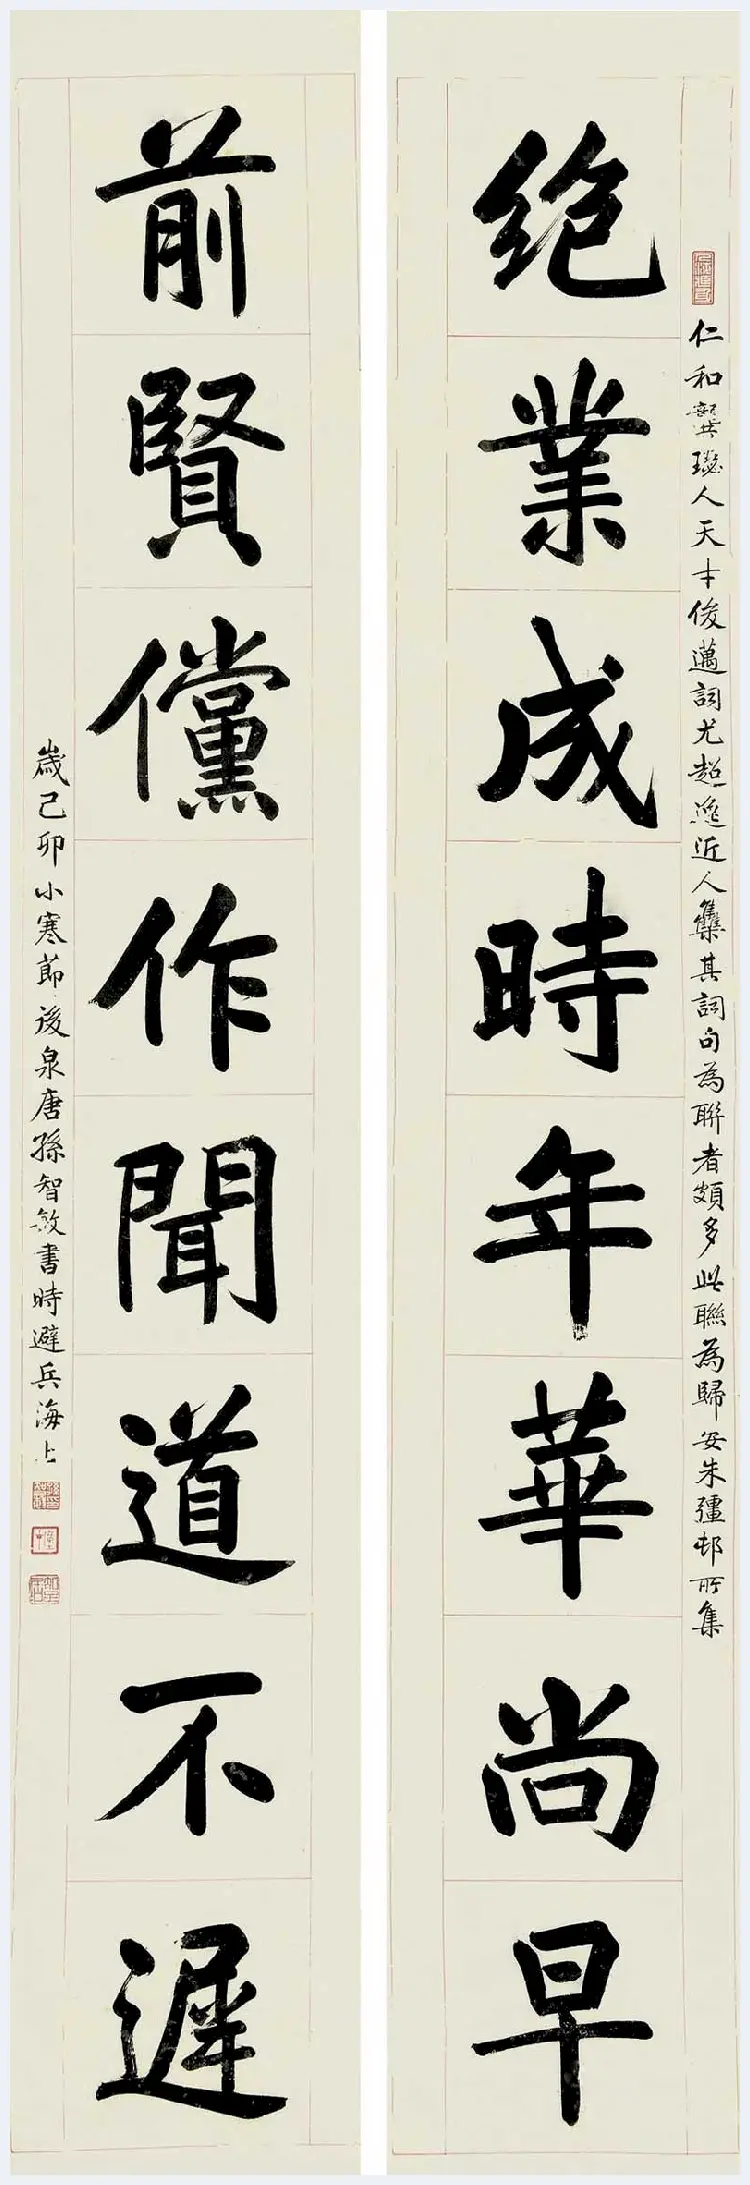 仁和龔璱人天才俊邁詞尤超逸近人集其詞句為聯者頗多此聯為歸安朱彊邨所集
絶業成時年華尚早
前賢儻作聞道不遲
歲己卯小寒節後泉唐孫智敏書時避兵海上